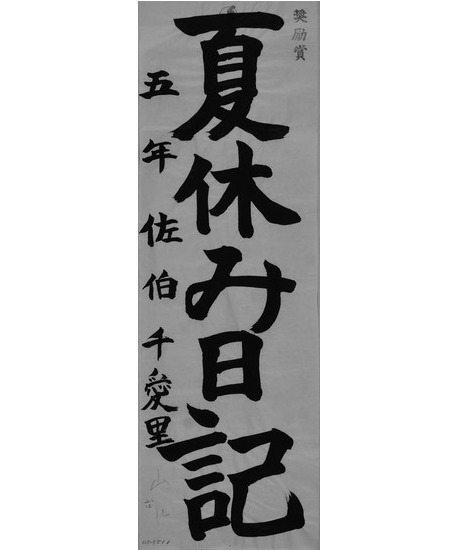 奨励賞
夏休み日記
五年佐伯千愛里